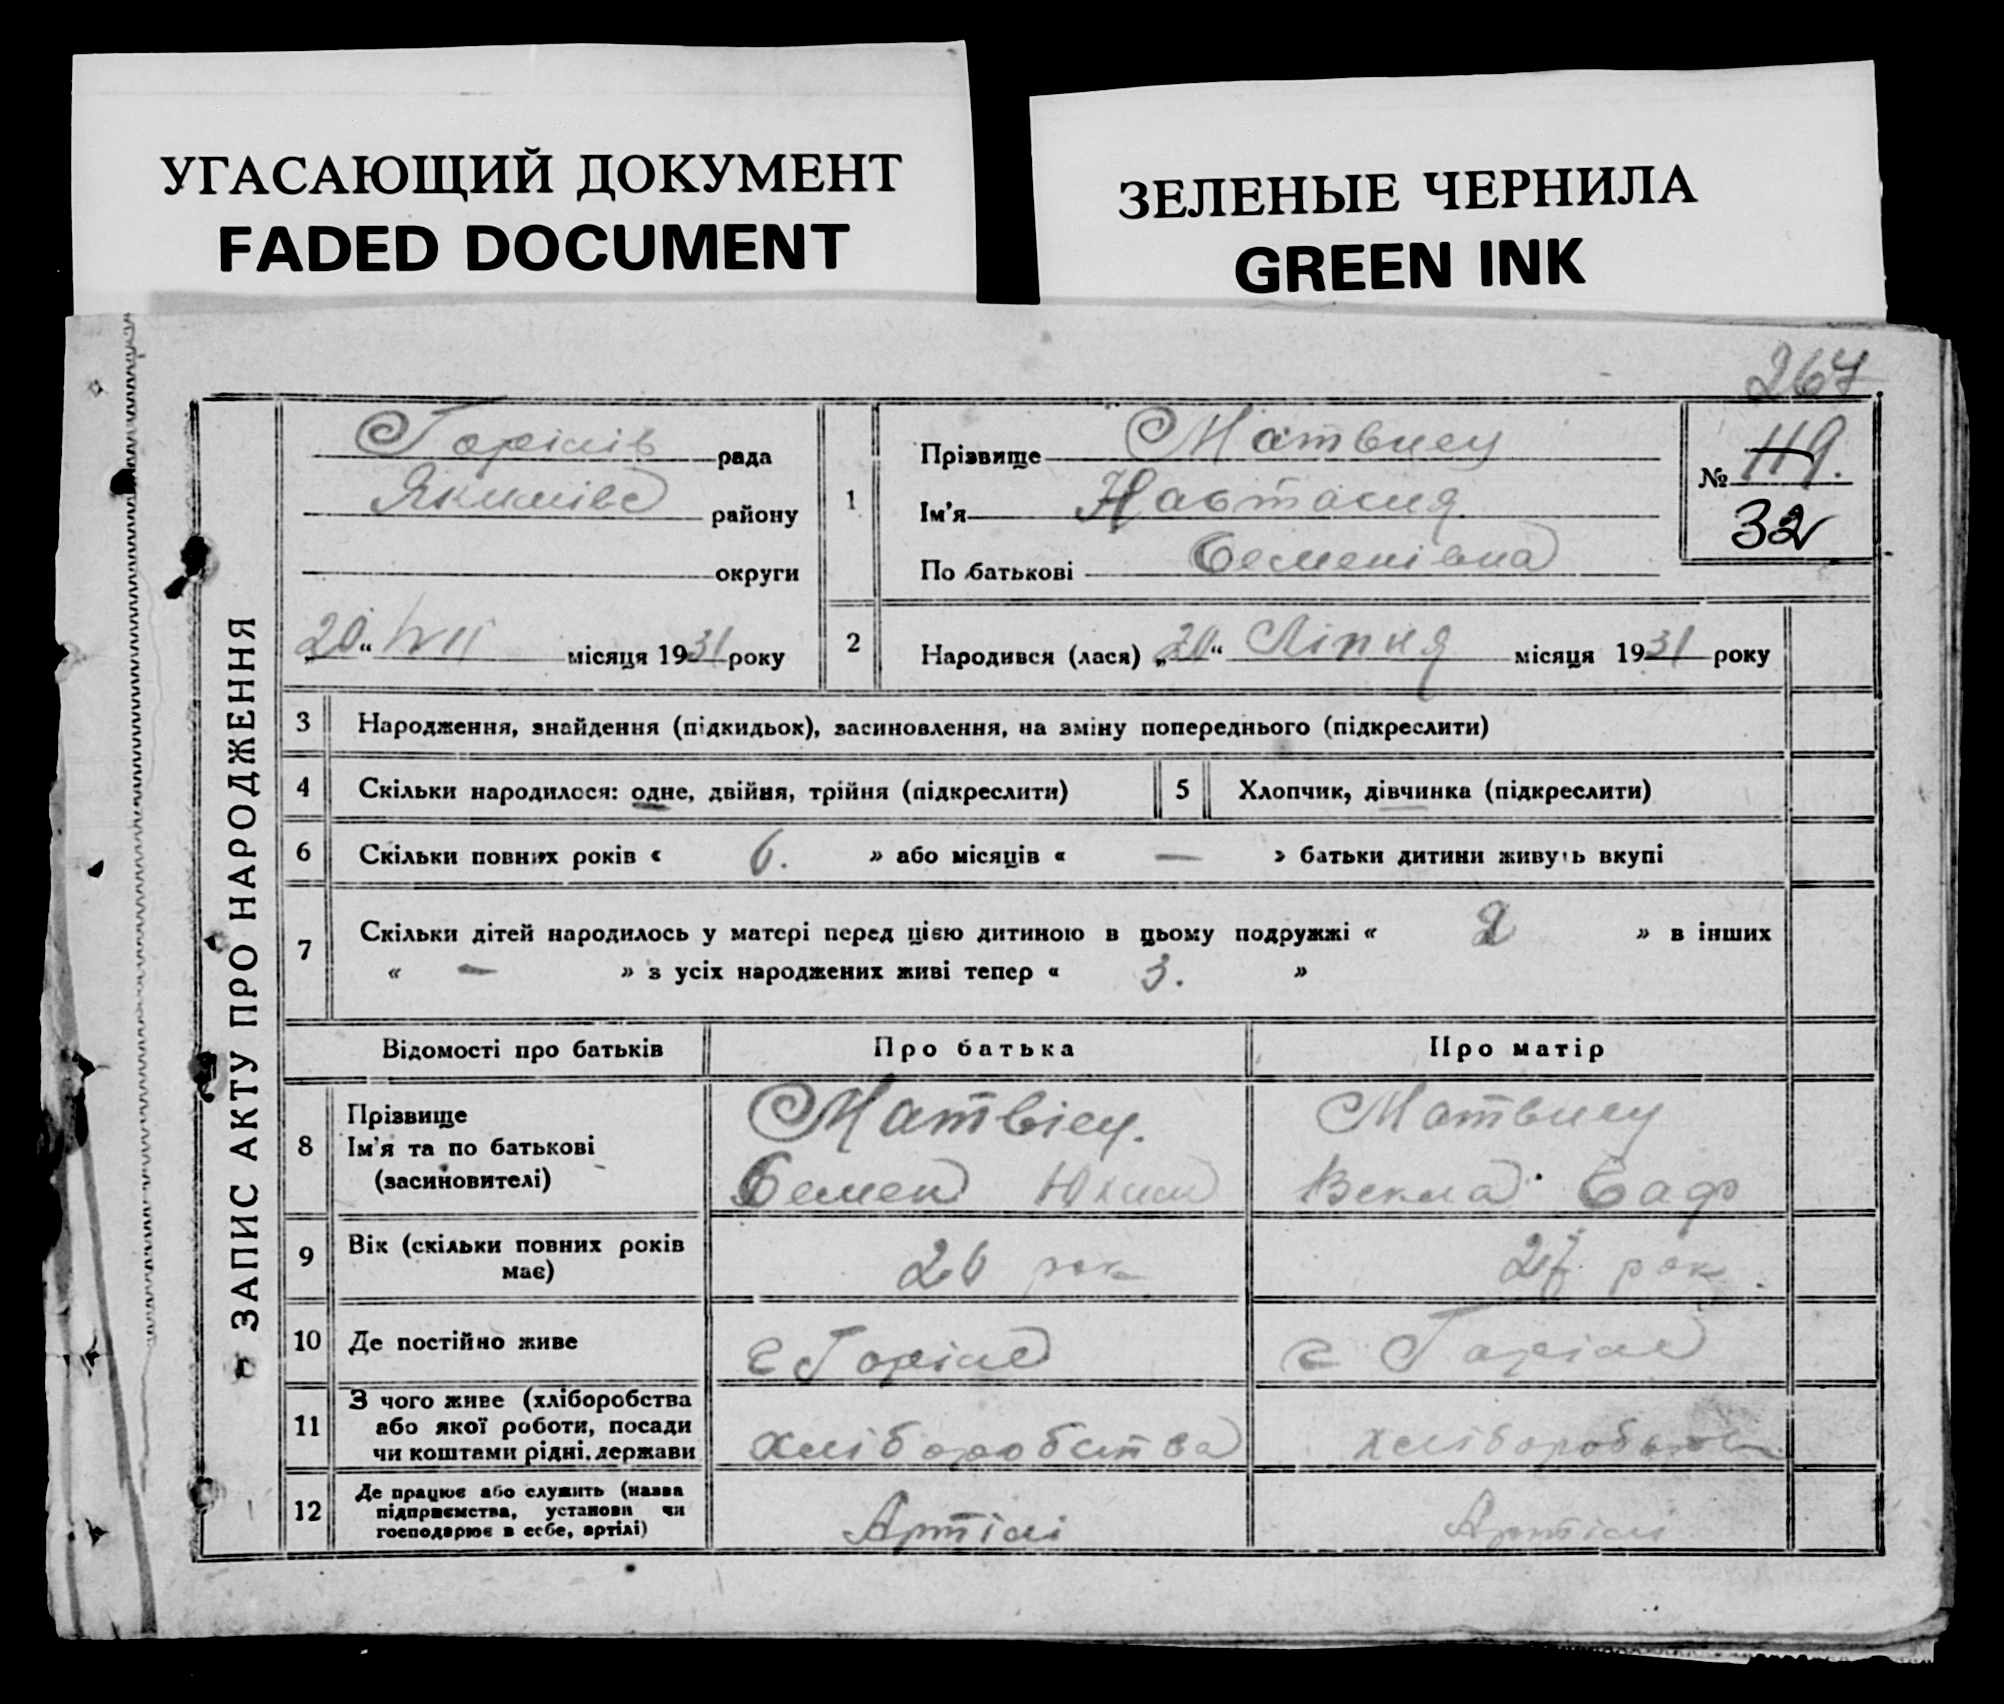 УГАСАЮЩИЙ ДОКУМЕНТ
FADED DOCUMENT
ЗЕЛЕНЫЕ ЧЕРНИЛА
GREEN INK
267
ЗАПИС АКТУ ПРО НАРОДЖЕННЯ
Горілів рада
Якимівс району
округи
„20“ VII місяця 1931 року
1
Прізвище Матвиец
Ім'я Настасия
По батькові Семенівна
№ 119.
32
2 Народився (лася) „20“ Ліпня місяця 1931 року
3 Народження, знайдення (підкидьок), засиновлення, на зміну попереднього (підкреслити)
4 Скільки народилося: одне, двійня, трійня (підкреслити) 5 Хлопчик, дівчинка (підкреслити)
6 Скільки повних років « 6. » або місяців « — » батьки дитини живуть вкупі
7 Скільки дітей народилось у матері перед цією дитиною в цьому подружжі « 2 » в інших
« — » з усіх народжених живі тепер « 3. »
Відомості про батьків Про батька Про матір
8 Прізвище
Ім'я та по батькові
(засиновителі)
Матвієц.
Семен Юхим
Матвиец
Векла Саф
9 Вік (скільки повних років
має)
26 рок
27 рок.
10 Де постійно живе с Горіле с Горіле
11 З чого живе (хліборобства
або якої роботи, посади
чи коштами рідні, держави
хліборобства
хліборобства
12 Де працює або служить (назва
підприємства, установи чи
господарює в себе, артілі)
Артілі
Артілі